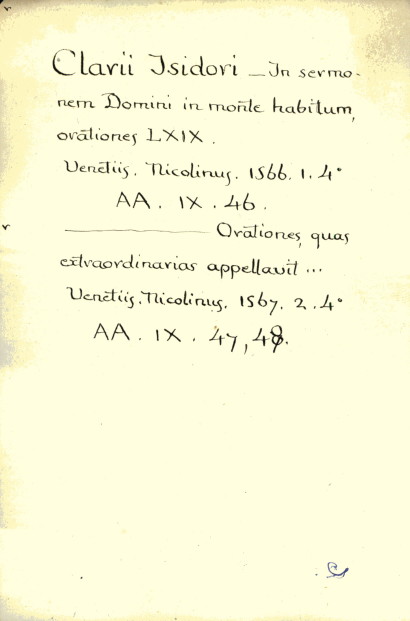 Clarii Isidori — In sermo-
nem Domini in monte habitum,
orationes LXIX.
Venetiis. Nicolinus. 1566. 1. 4°
AA. IX. 46.
——— Orationes, quas
extraordinarias appellavit ...
Venetiis. Nicolinus, 1567. 2. 4°
AA. IX. 47, 48.